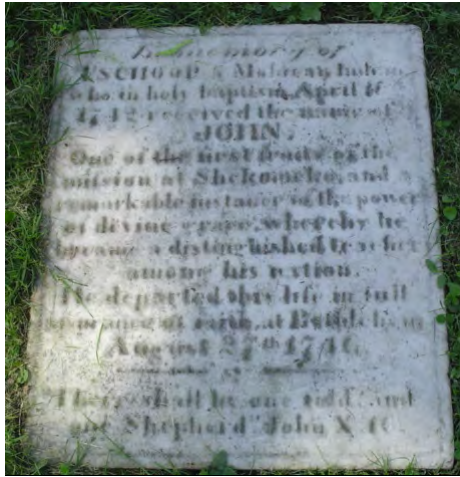 In memory of
TSCHOOP a Mohican Indian
who in holy baptism, April 16
1742 received the name of
JOHN.
One of the first fruits of the
mission at Shekomeko, and a
remarkable instance of the power
of divine grace, whereby he
became a distinguished teacher
among his nation.
He departed this life in full
assurance of faith, at Bethlehem
August 27th 1746.
There shall be one fold, and
one Shepherd John X. 16.